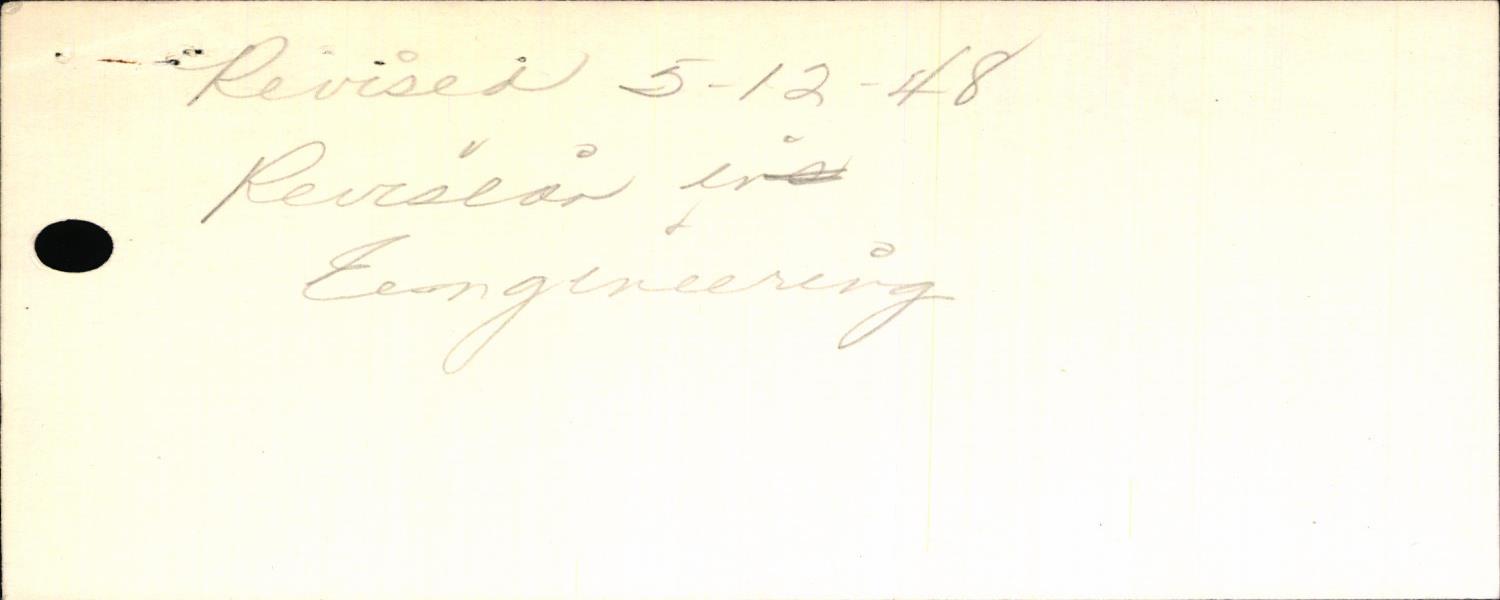 Revised 5-12-48
Revision in
Eengineering